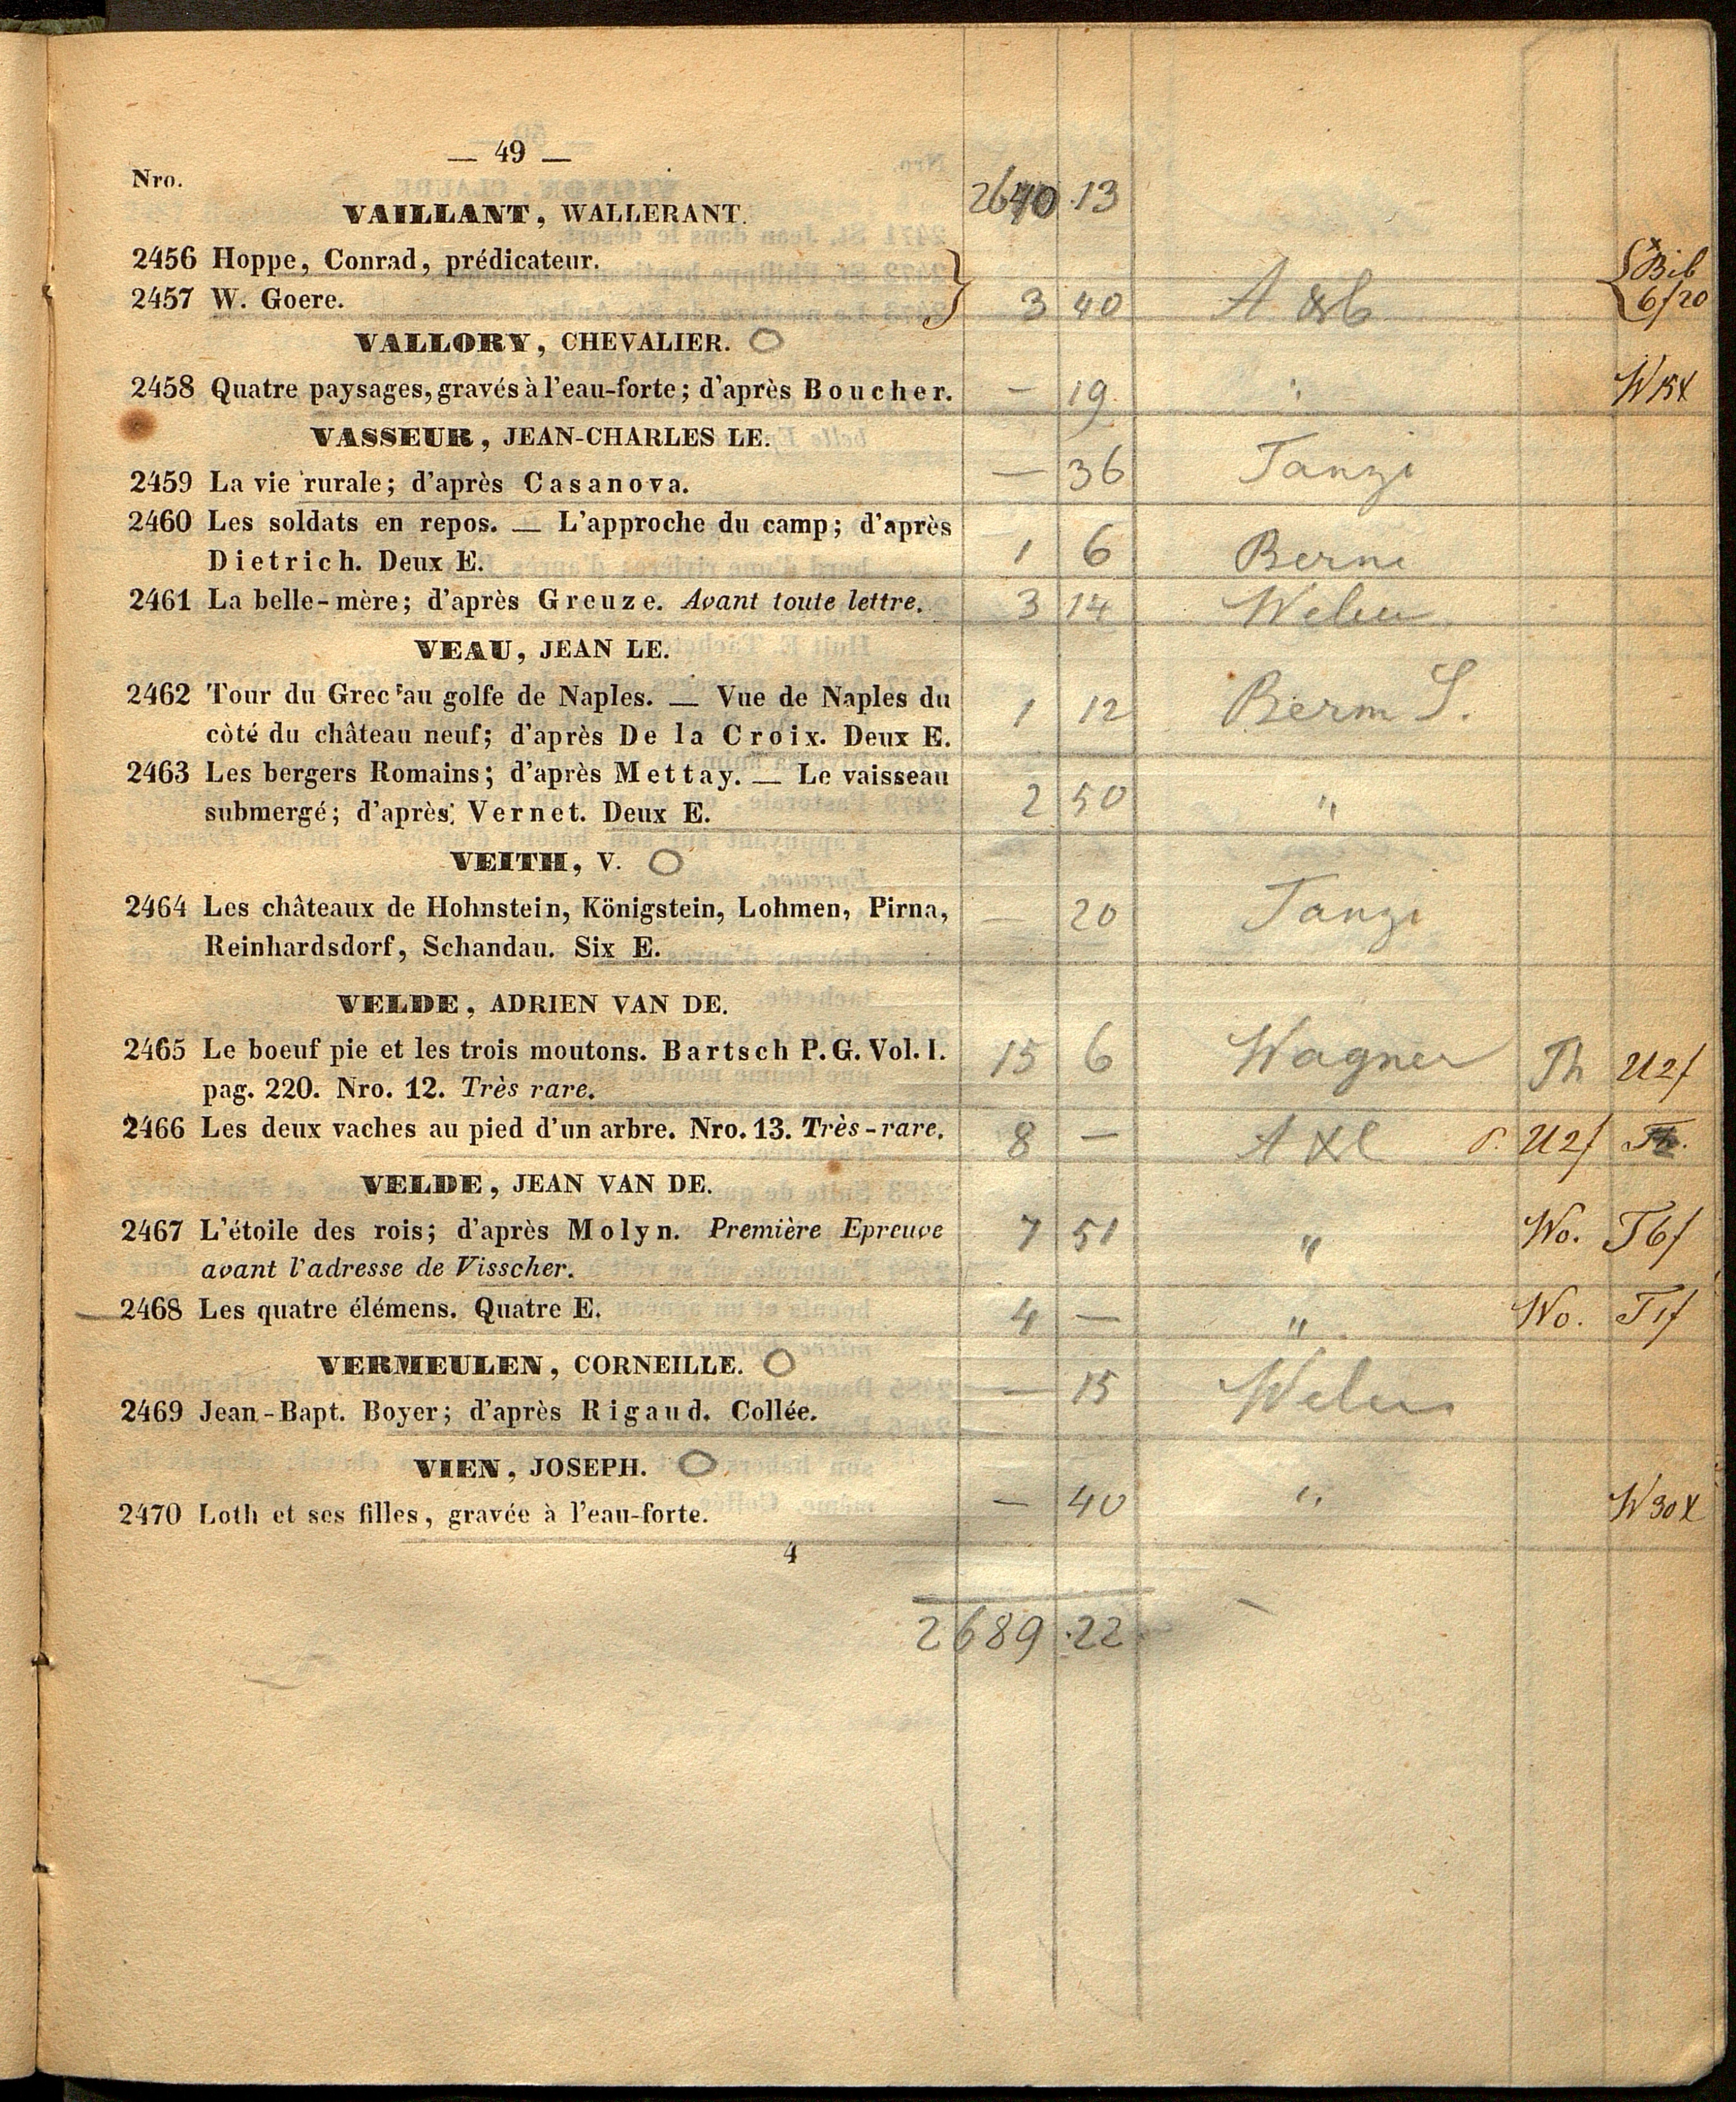 — 49 —
Nro.
2640 .13
VAILLANT, WALLERANT.
2456 Hoppe, Conrad, prédicateur.
Bib
2457 W. Goere. 3 40
6/20
VALLORY, CHEVALIER.
2458 Quatre paysages, gravés à l'eau-forte; d'après Boucher. — 19 "
VASSEUR, JEAN-CHARLES LE.
2459 La vie rurale; d'après Casanova. — 36 Tanzi
2460 Les soldats en repos. — L'approche du camp; d'après
Dietrich. Deux E. 1 6
2461 La belle-mère; d'après Greuze. Avant toute lettre. 3 14
VEAU, JEAN LE.
2462 Tour du Grec au golfe de Naples. — Vue de Naples du 1 12
côté du château neuf; d'après De la Croix. Deux E.
2463 Les bergers Romains; d'après Mettay. — Le vaisseau
submergé; d'après Vernet. Deux E. 2 50 "
VEITH, V.
2464 Les châteaux de Hohnstein, Königstein, Lohmen, Pirna, — 20 Tanzi
Reinhardsdorf, Schandau. Six E.
VELDE, ADRIEN VAN DE.
2465 Le boeuf pie et les trois moutons. Bartsch P. G. Vol. I. 15 6 Wagner Th U2f
pag. 220. Nro. 12. Très rare.
2466 Les deux vaches au pied d'un arbre. Nro. 13. Très-rare. 8 — U2f
VELDE, JEAN VAN DE.
2467 L'étoile des rois; d'après Molyn. Première Epreuve 7 51 " Wo. T6f
avant l'adresse de Visscher.
2468 Les quatre élémens. Quatre E. 4 — " Wo. T1f
VERMEULEN, CORNEILLE.
2469 Jean-Bapt. Boyer; d'après Rigaud. Collée. — 15
VIEN, JOSEPH.
2470 Loth et ses filles, gravée à l'eau-forte. — 40 " W 30x
4
2689 .22